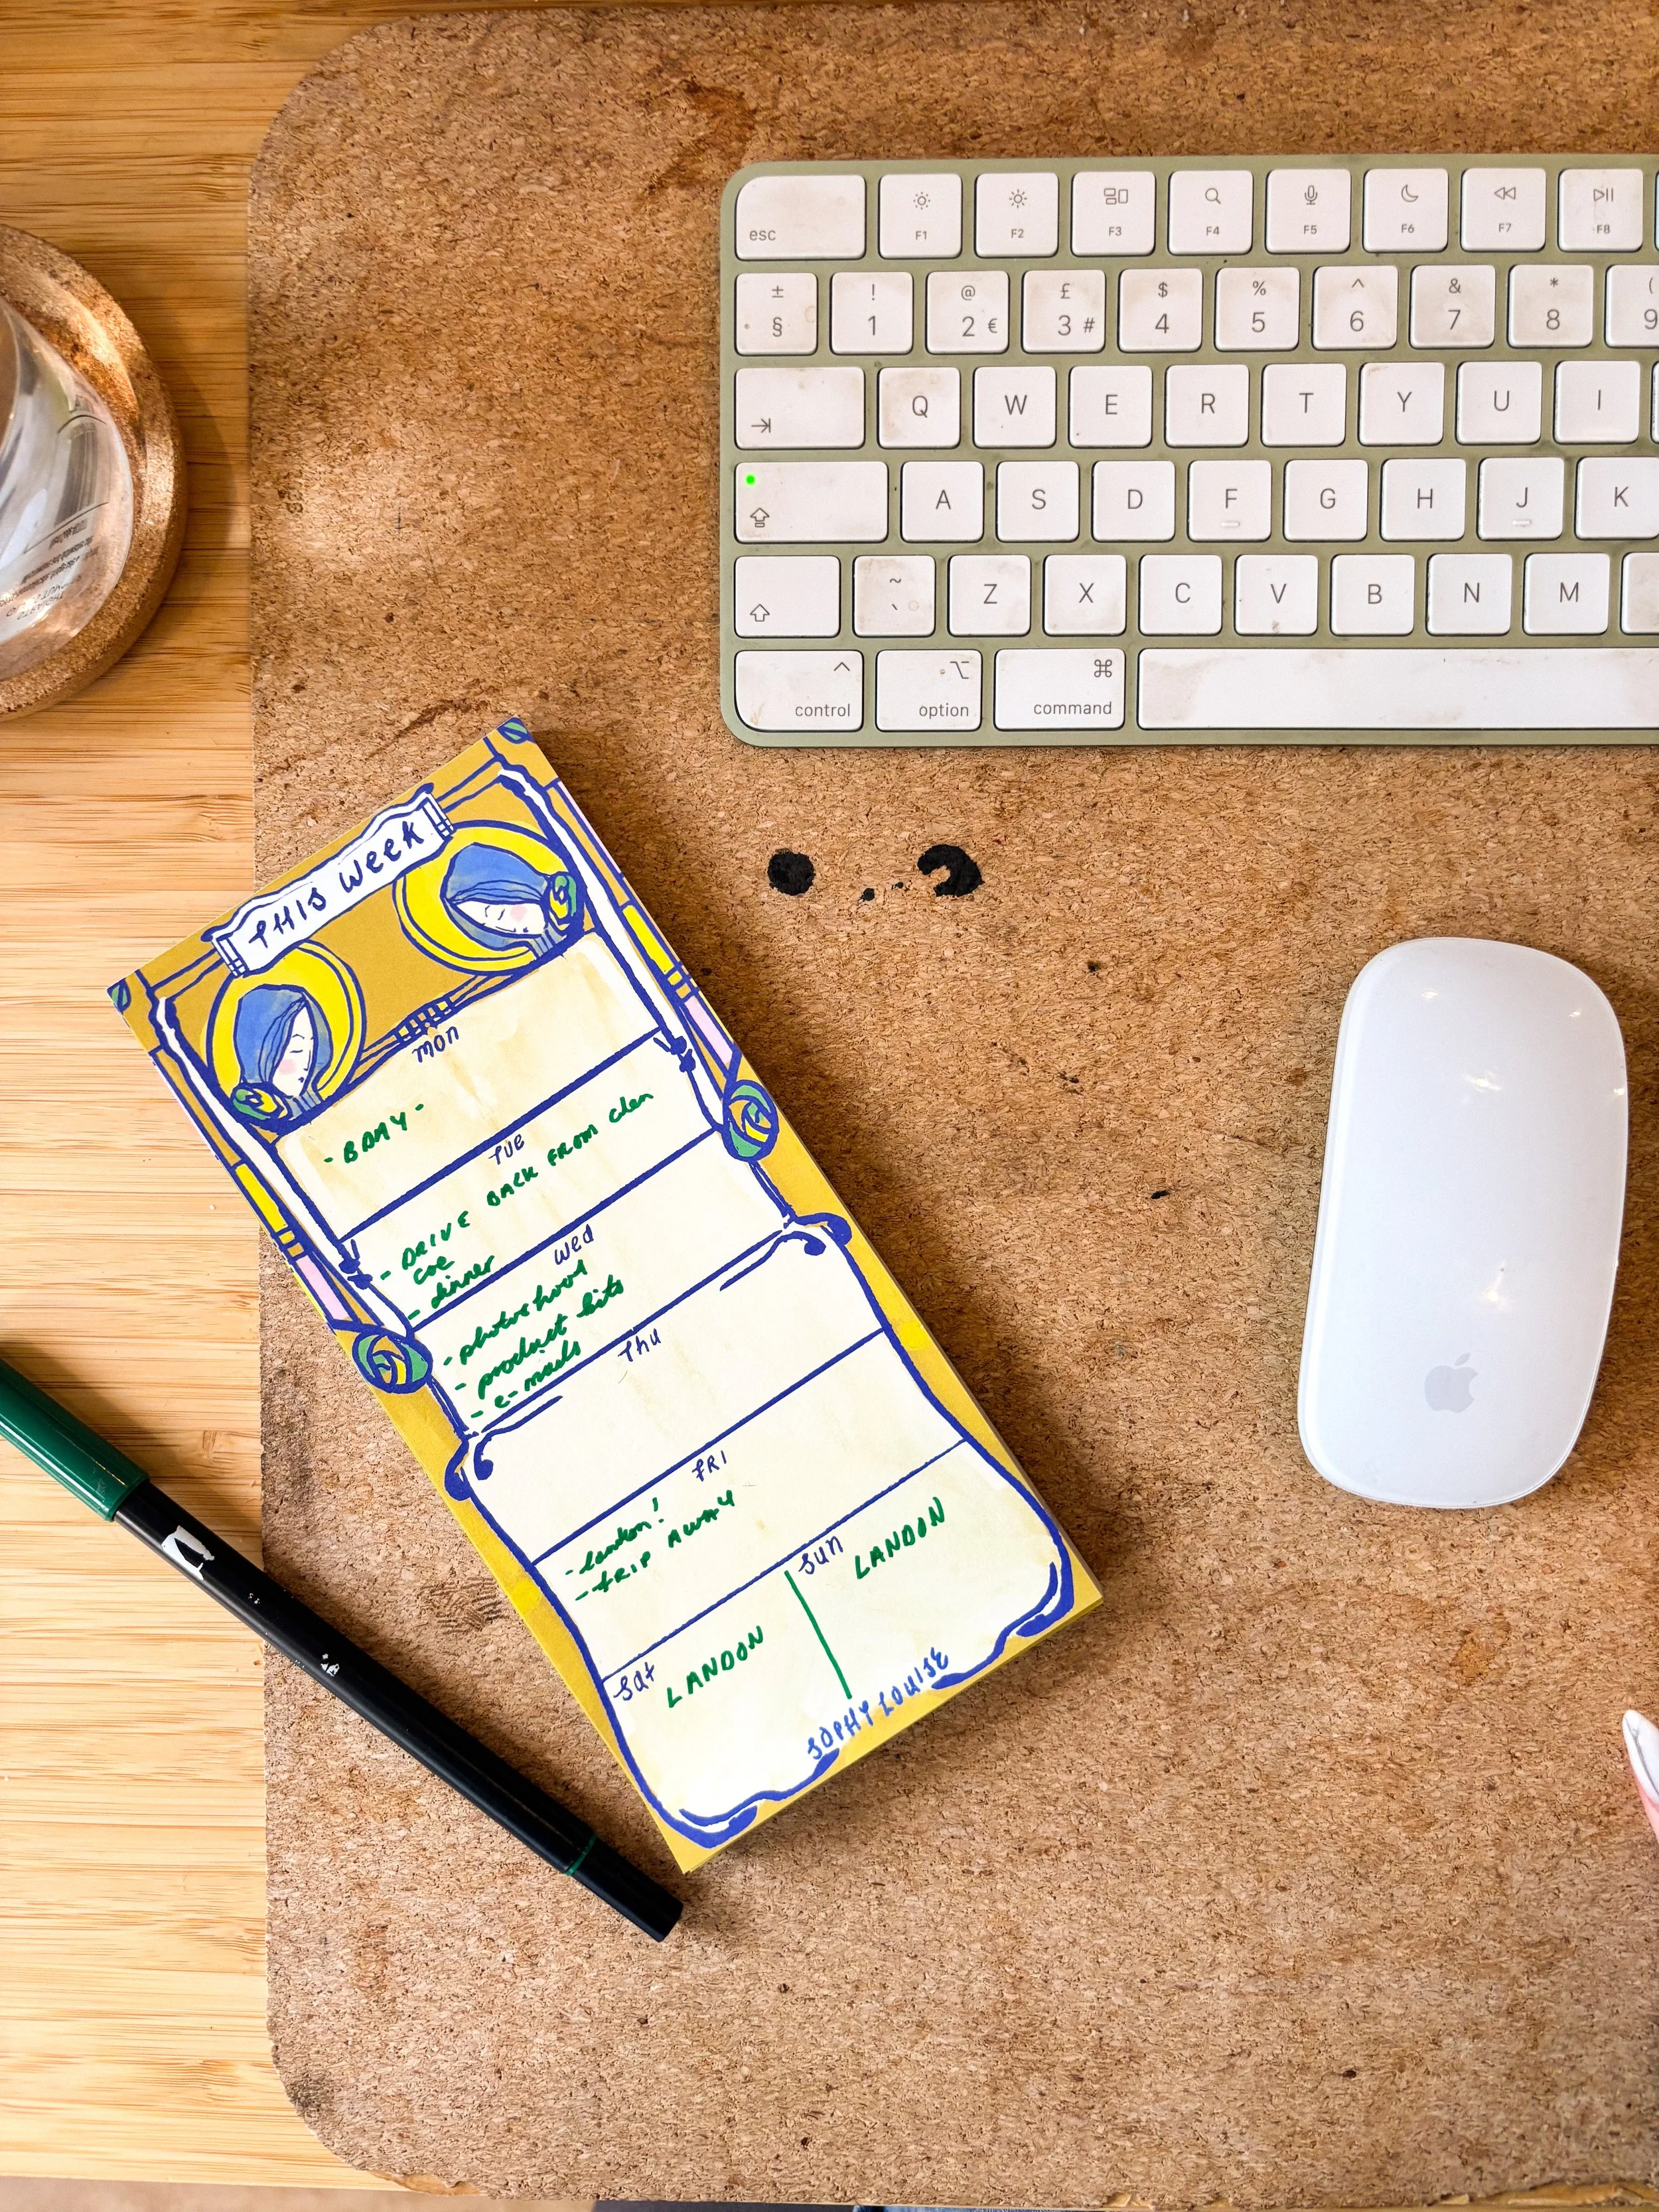 esc
F1 F2 F3 F4 F5 F6 F7 F8
± ! @ £ $ % ^ & * (
§ 1 2 € 3 # 4 5 6 7 8 9
Q W E R T Y U I
A S D F G H J K
~ ` Z X C V B N M
control option command
THIS WEEK
Mon
- BDAY -
Tue
- DRIVE BACK FROM
- dinner
Wed
- photoshoot
- product bits
- e-mails
Thu
FRI
- London!
- TRIP AWAY
Sat
LANDON
Sun
LANDON
SOPHY LOUISE